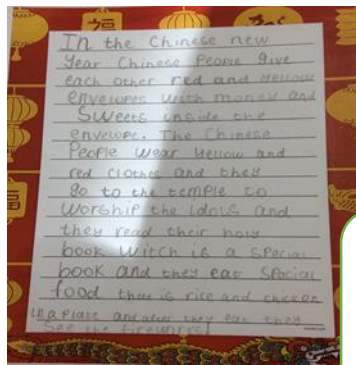 In the Chinese new
Year Chinese People give
each other red and Yellow
envelopes with money and
Sweets inside the
envelope. The Chinese
People wear Yellow and
red clothes and they
go to the temple to
Worship the idols and
they read their holy
book Witch is a special
book and they eat special
food that is rice and chicken
in a plate and after they eat they
See the fireworks!
福